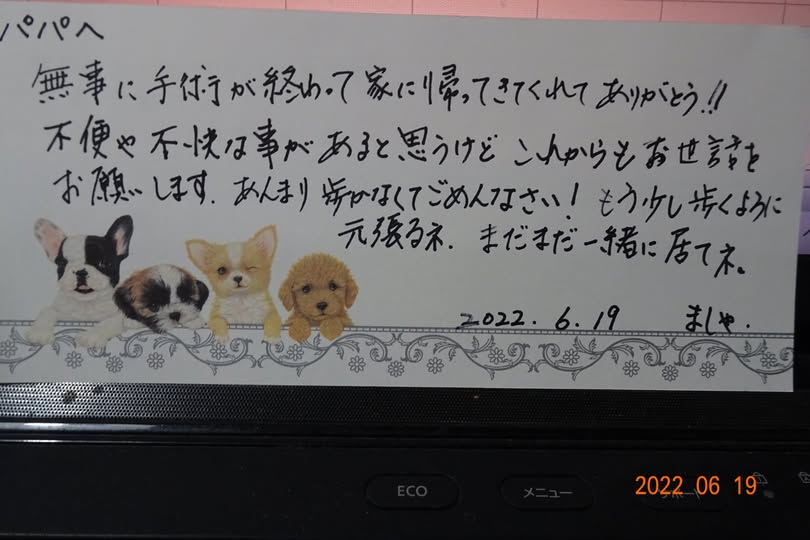 パパへ
無事に手術が終わって家に帰ってきてくれてありがとう!!
不便や不快な事があると思うけどこれからもお世話を
お願いします. あんまり歩かなくてごめんなさい! もう少し歩くように
元張るネ. まだまだ一緒に居てネ。
2022. 6. 19 ましゃ.
ECO
メニュー
2022 06 19